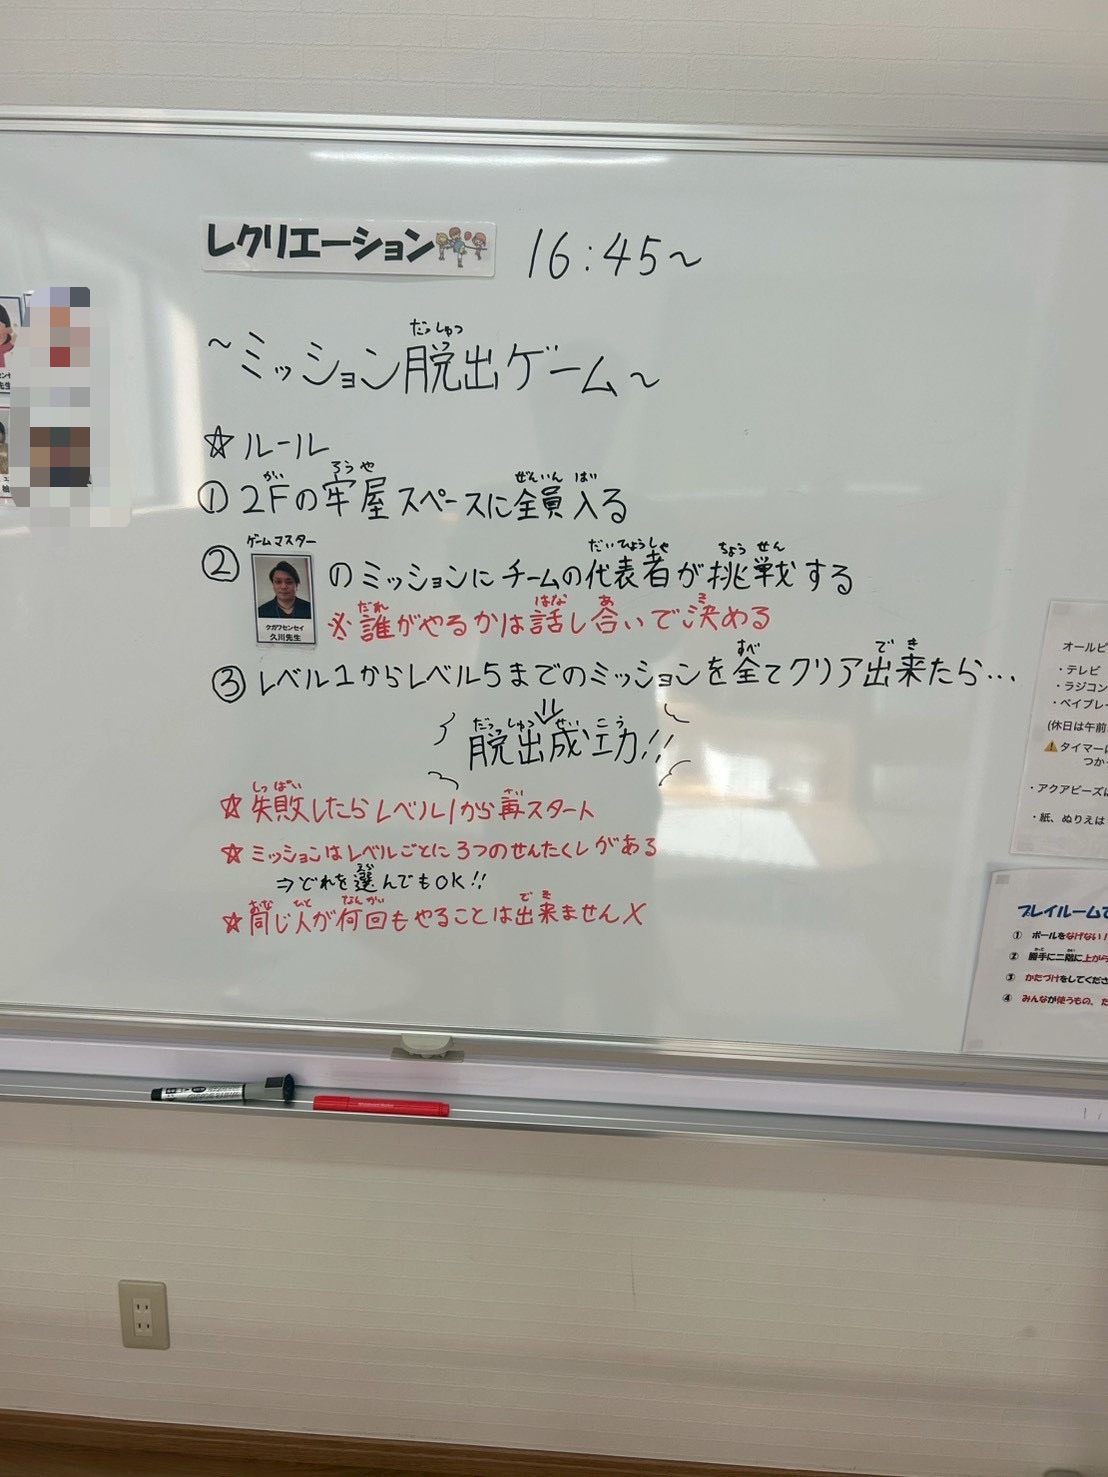 レクリエーション 16:45～
～ミッション脱出ゲーム～
だっしゅつ
☆ルール
①2Fの牢屋スペースに全員入る
かい ろうや ぜんいん はい
②のミッションにチームの代表者が挑戦する
ゲームマスター だいひょうしゃ ちょうせん
久川先生
※誰がやるかは話し合いで決める
だれ はな あ き
③レベル1からレベル5までのミッションを全てクリア出来たら…
すべ でき
脱出成功!!
だっしゅつせいこう
☆失敗したらレベル1から再スタート
しっぱい さい
☆ミッションはレベルごとに3つのせんたくしがある
⇒どれを選んでもOK!!
えら
☆同じ人が何回もやることは出来ません×
おな ひと なんかい でき
オールピ
・テレビ
・ラジコン
・ベイブレー
(休日は午前
⚠タイマーに
つかっ
・アクアビーズは
・紙、ぬりえは
プレイルームで
① ボールをなげない!
② 勝手に二階に上がら
③ かたづけをしてくださ
④ みんなが使うもの、た